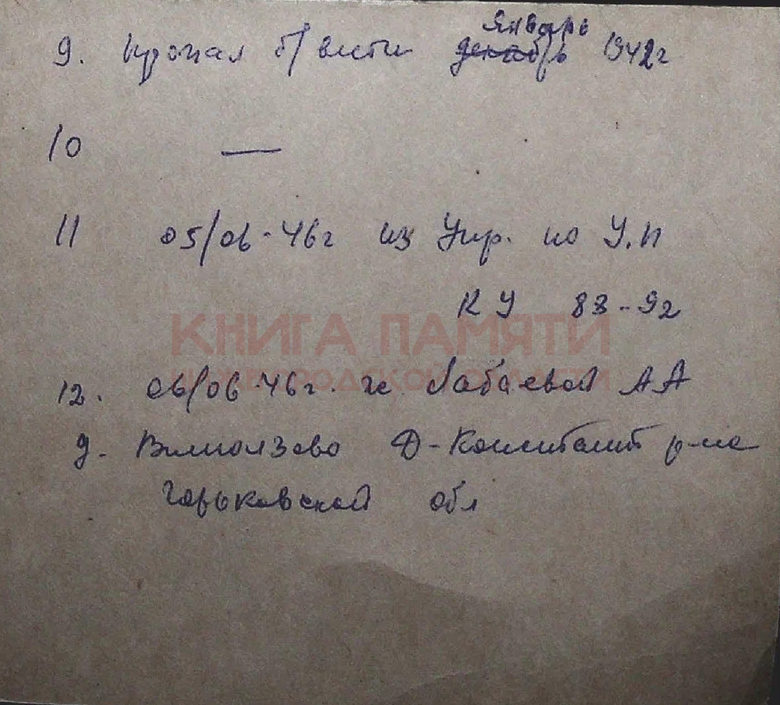 январь
9. Пропал б/вести декабрь 1942г
10 —
11 05/06-46г из Упр. по У.П
КУ 83-92
КНИГА ПАМЯТИ
НИЖЕГОРОДСКОЙ ОБЛАСТИ
12. 06/06-46г. гр. Лабаевой АА
д. Д-Константи р-на
Горьковской обл